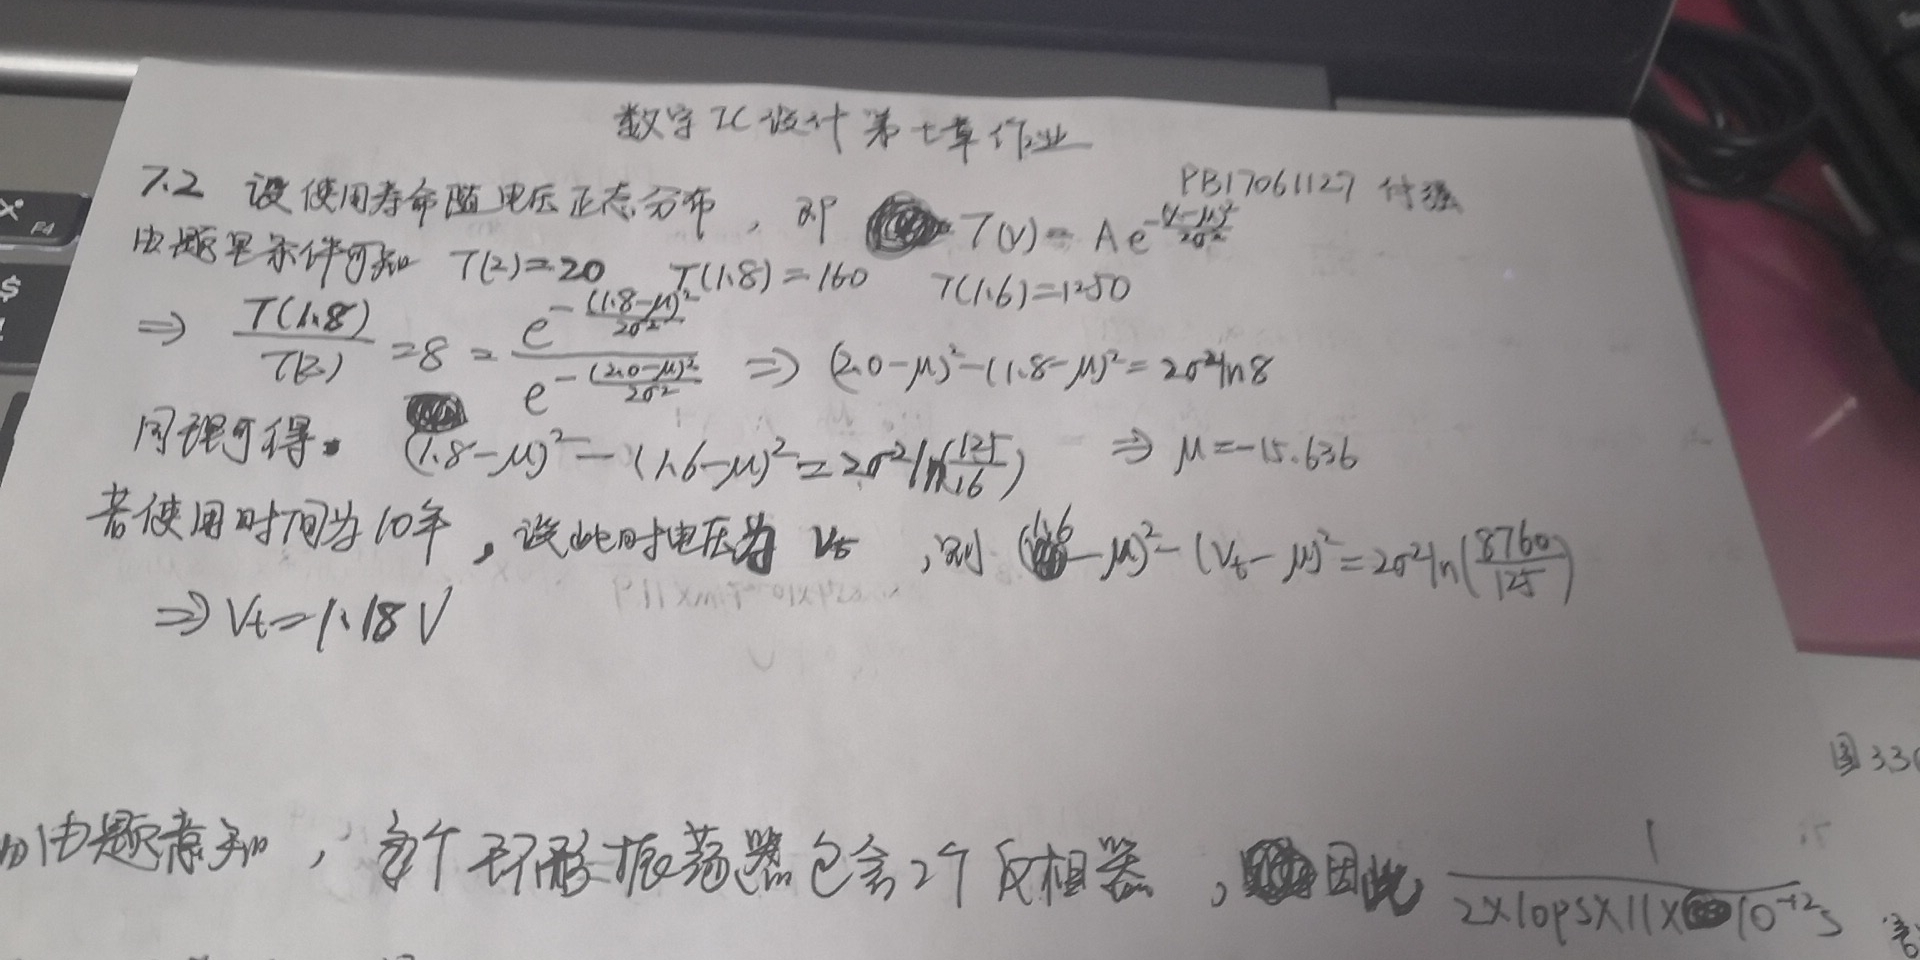 数字IC设计第七章作业
PB17061127 付强
7.2 设使用寿命随电压正态分布，即 T(V)=Ae^{-\frac{(V-μ)^2}{2σ^2}}
由题目条件可知 T(2)=20 T(1.8)=160 T(1.6)=1250
⇒ \frac{T(1.8)}{T(2)}=8=\frac{e^{-\frac{(1.8-μ)^2}{2σ^2}}}{e^{-\frac{(2.0-μ)^2}{2σ^2}}} ⇒ (2.0-μ)^2-(1.8-μ)^2=2σ^2ln8
同理可得. (1.8-μ)^2-(1.6-μ)^2=2σ^2ln(\frac{125}{16}) ⇒ μ=-15.636
若使用时间为10年，设此时电压为 Vt，则 (1.6-μ)^2-(Vt-μ)^2=2σ^2ln(\frac{8760}{125})
⇒ Vt=1.18V
图3.3
由题意知，每个环形振荡器包含2个反相器，因此 \frac{1}{2×10ps×11×10^{-12}s}